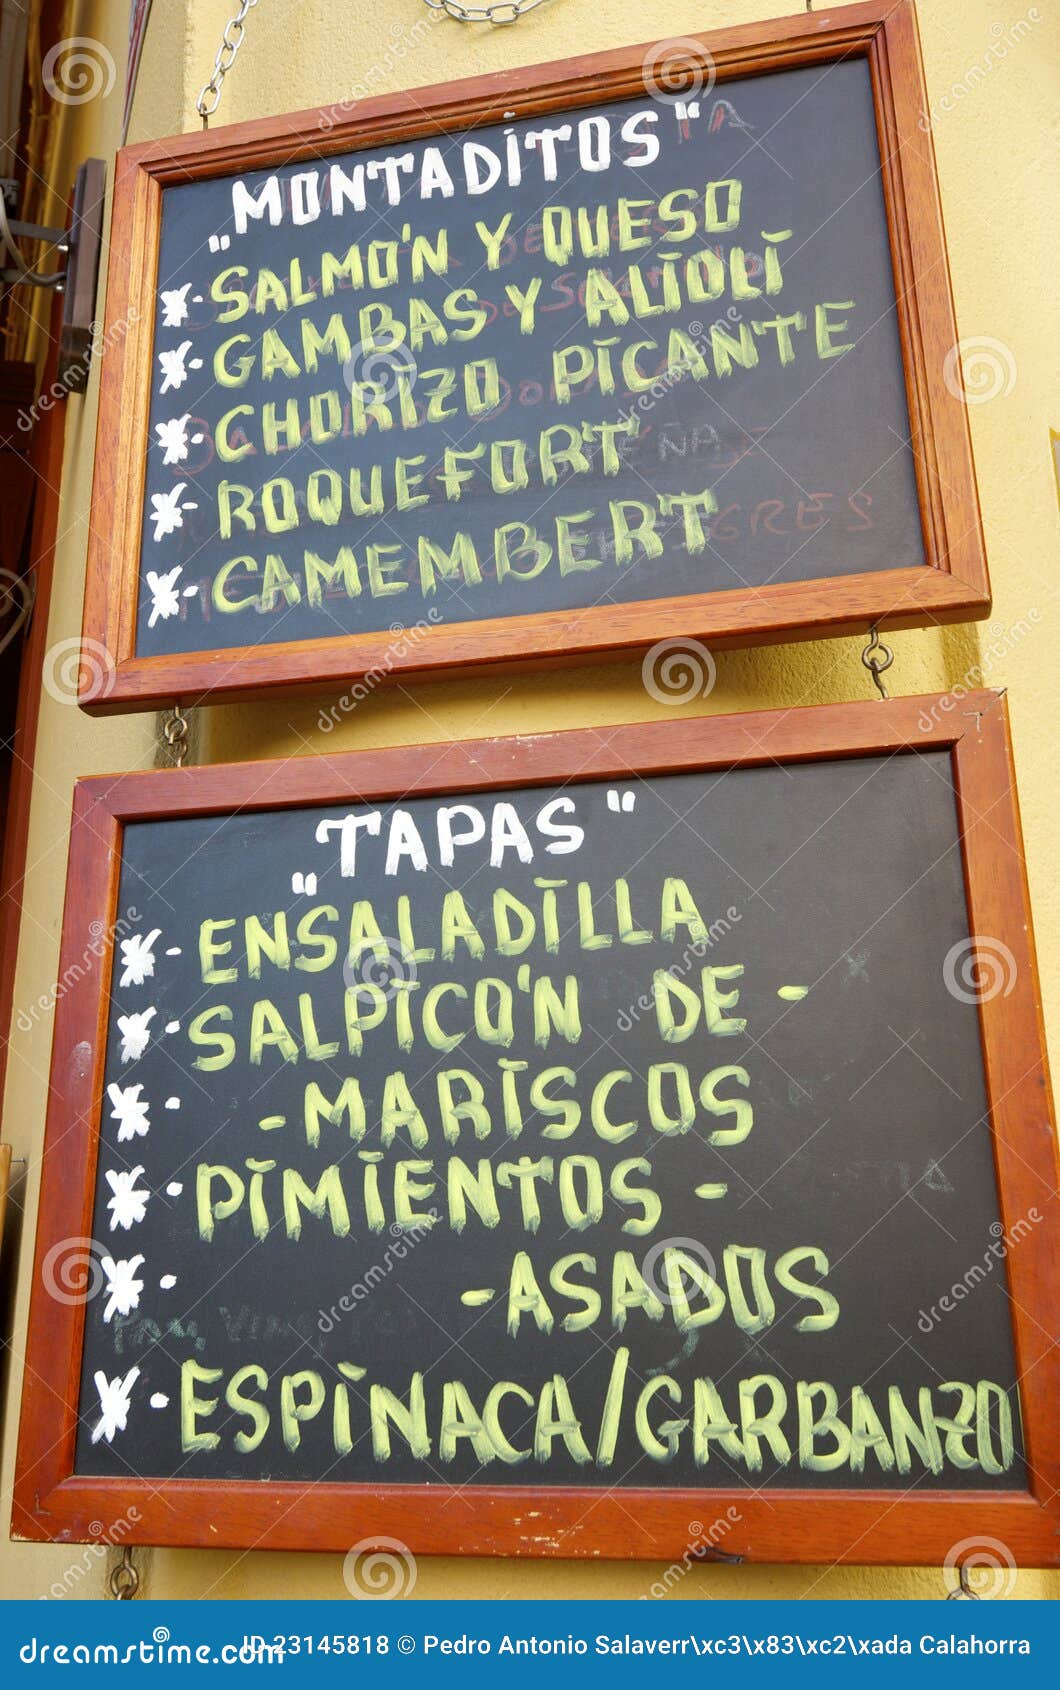 "MONTADITOS"
SALMÓN Y QUESO
GAMBAS Y ALIOLI
CHORIZO PICANTE
ROQUEFORT
CAMEMBERT
"TAPAS"
ENSALADILLA
SALPICÓN DE -
- MARISCOS
PIMIENTOS -
- ASADOS
ESPINACA/GARBANZO
dreamstime.com
ID 23145818 © Pedro Antonio Salaverr\xc3\x83\xc2\xada Calahorra